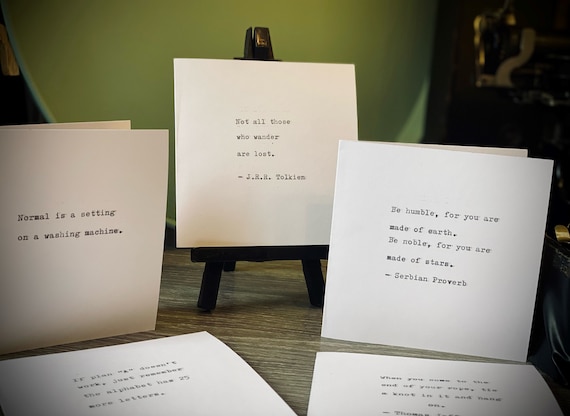 Not all those
who wander
are lost.
— J.R.R. Tolkien
Normal is a setting
on a washing machine.
Be humble, for you are
made of earth.
Be noble, for you are
made of stars.
— Serbian Proverb
If plan "A" doesn't
work, just remember
the alphabet has 25
more letters.
When you come to the
end of your rope, tie
a knot in it and hang
on.
— Thomas